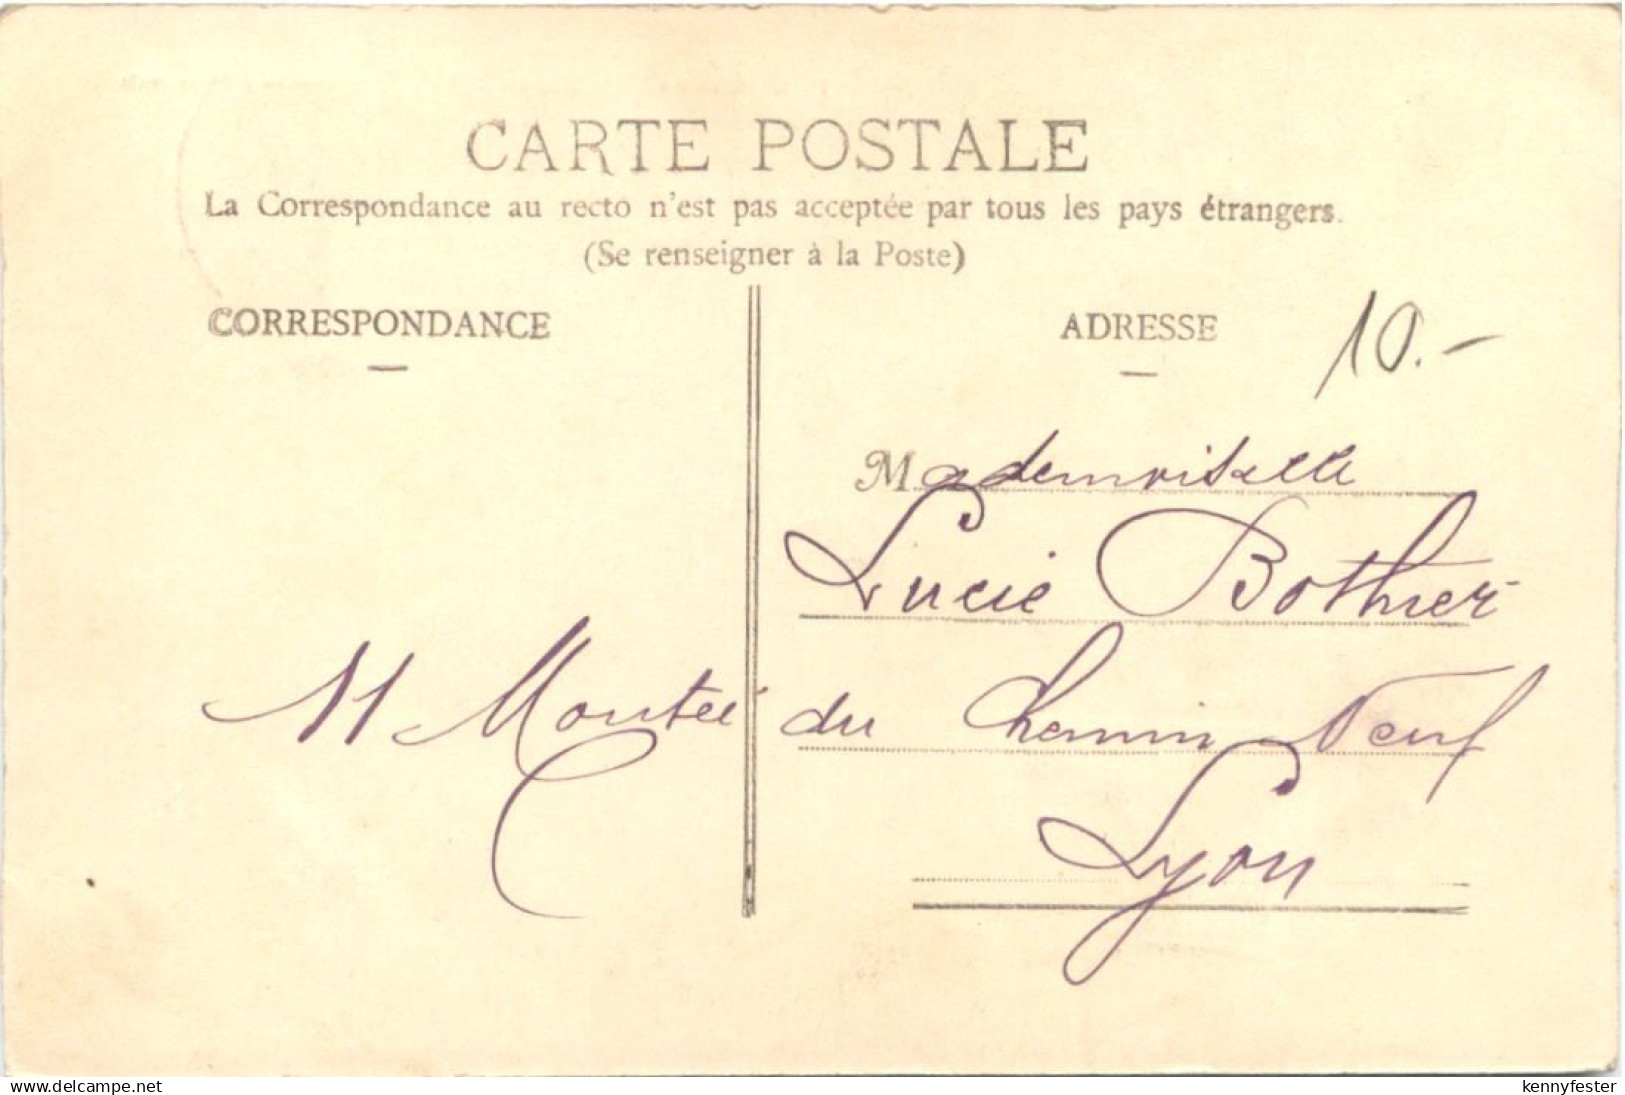 CARTE POSTALE
La Correspondance au recto n'est pas acceptée par tous les pays étrangers.
(Se renseigner à la Poste)
CORRESPONDANCE
ADRESSE
10.-
Mademoiselle
Lucie Bothier
11 Montée du Chemin Neuf
Lyon
www.delcampe.net
kennyfester